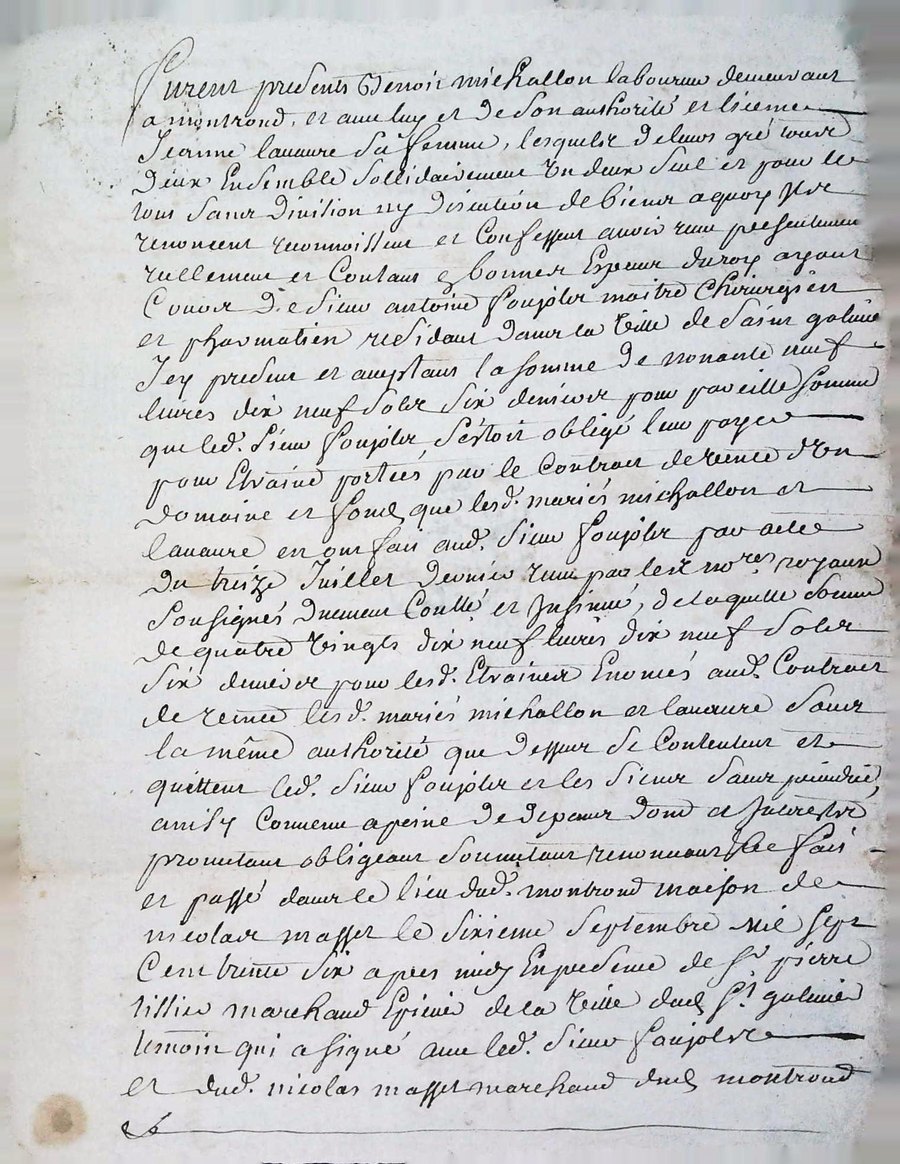 furent presents Benoit michallon laboureur demeurant
a montrond, et avec luy et de son authorité et licence
Jeanne lavaure sa femme, lesquels de leurs gré tous
deux Ensemble sollidairement un deux seul et pour le
tous sans division ny discution de biens a quoy ils
renoncent reconnoissent et Confessent avoir reçu presentement
reellement et Contant en bonnes Especes du roy ayant
Cours de sieur antoine foujols maitre Chirurgien
et pharmatien residant dans la ville de saint galmier
Icy present et aceptant la somme de nonante neuf
livres dix neuf sols six deniers pour pareille somme
que led. sieur foujols s'estoit obligé leur payer
pour Etraine portées par le Contract de vente d'un
domaine et fond que lesd. mariés michallon et
lavaure en ont fait aud. sieur foujols par acte
du treize Juillet dernier reçu par les nores royaux
soussignés duement Conllé et Insinué, de laquelle somme
de quatre vingts dix neuf livres dix neuf sols
six deniers pour lesd. Etraines Enoncés aud. Contract
de vente lesd. mariés michallon et lavaure sous
la même authorité que dessus se Contentent et
quittent led. sieur foujols et les siens sans prejudice,
ainsy Convenu a peine de depans dom et Interestz
promettant obligeant soumettant renonceant fait
et passé dans le lieu dud. montrond maison de
nicolas masset le sixieme septembre mil sept
Cent trente six apres midy En presence de sr pierre
tissier marchand Epicié de la ville dud st galmier
temoin qui a signé avec led. sieur foujols
et dud. nicolas masset marchand dud montrond